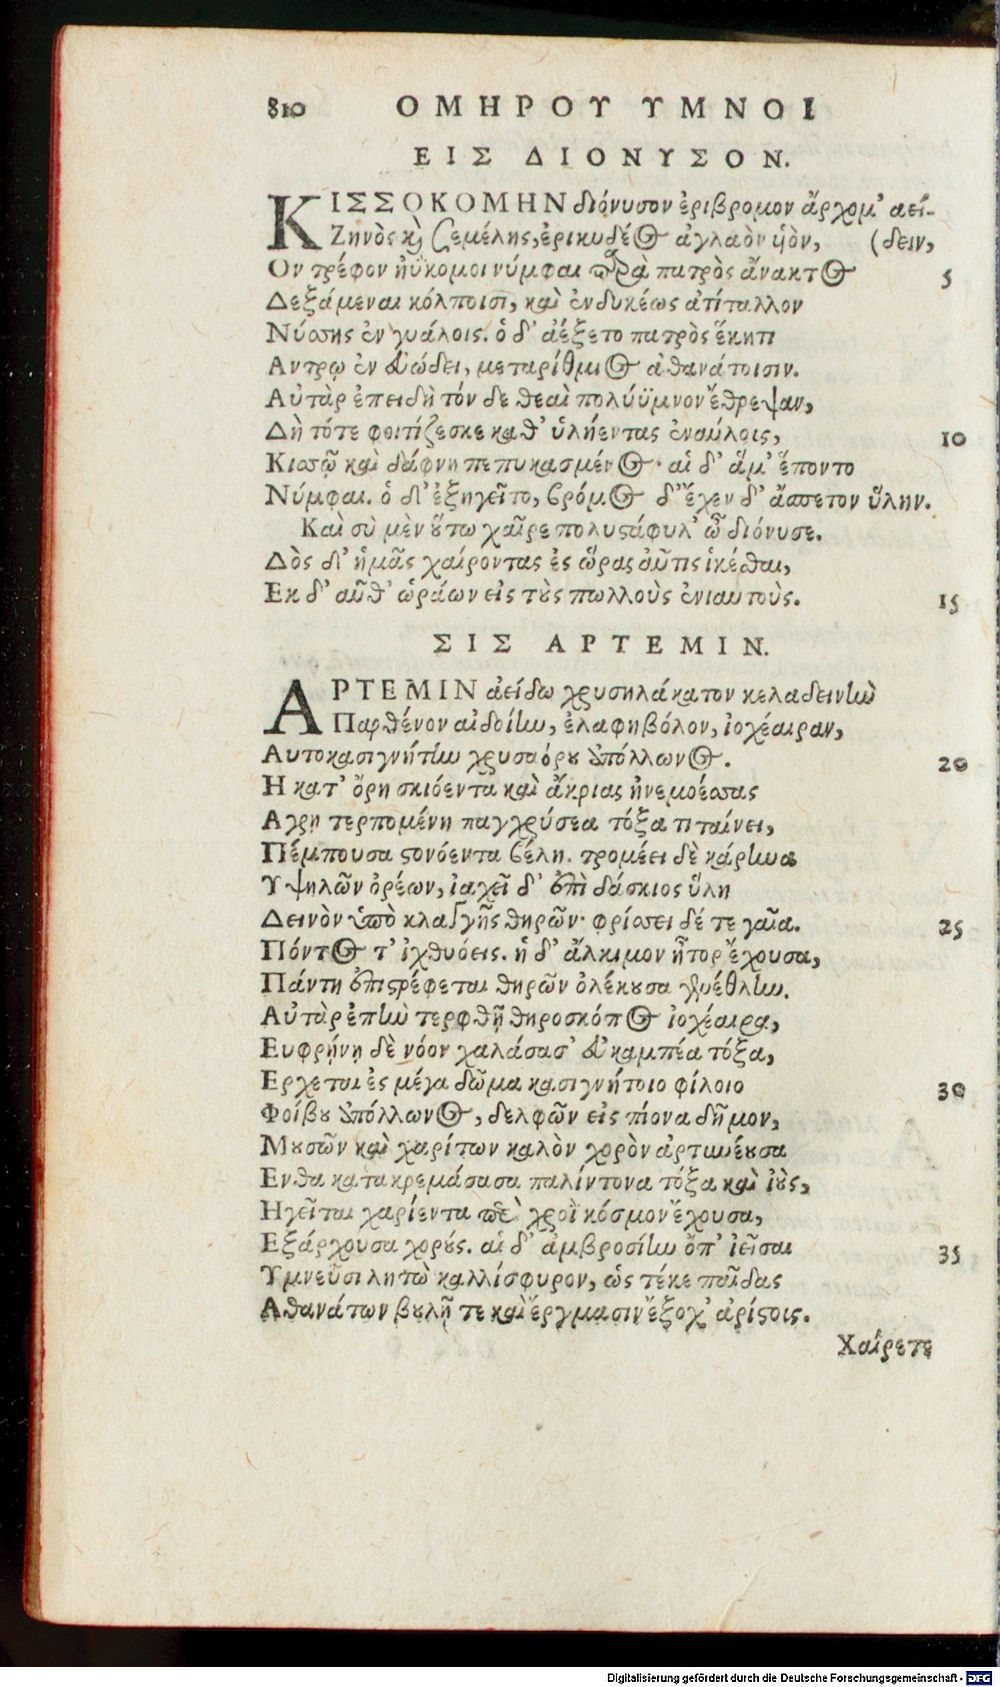 810 ΟΜΗΡΟΥ ΥΜΝΟΙ
ΕΙΣ ΔΙΟΝΥΣΟΝ.
ΚΙΣΣΟΚΟΜΗΝ διόνυσον ἐρίβρομον ἄρχομ' αεί-
Ζηνὸς κὶ Σεμέλης, ἐρικυδέος αγλαὸν υἱὸν, (δειν,
Ον τρέφον ἠΰκομοι νύμφαι παρὰ πατρὸς ἄνακτος 5
Δεξάμεναι κόλποισι, καὶ ἐνδυκέως ἀτίταλλον
Νύσσης ἐν γυάλοις. ὁ δ' ἀέξετο πατρὸς ἕκητι
Αντρῳ ἐν εὐώδει, μεταρίθμιος ἀθανάτοισιν.
Αὐτὰρ ἐπειδὴ τόν δε θεαὶ πολύϋμνον ἔθρεψαν,
Δὴ τότε φοιτίζεσκε καθ' ὑλήεντας ἐναύλοις, 10
Κισσῷ καὶ δάφνῃ πεπυκασμένος· αἱ δ' ἅμ' ἕποντο
Νύμφαι. ὁ δ' ἐξηγεῖτο, βρόμος δ' ἔχεν δ' ἄσσετον ὕλην.
Καὶ σὺ μὲν οὕτω χαῖρε πολυστάφυλ' ὦ διόνυσε.
Δὸς δ' ἡμᾶς χαίροντας ἐς ὥρας αὖτις ἱκέσθαι,
Εκ δ' αὖθ' ὡράων εἰς τοὺς πολλοὺς ἐνιαυτούς. 15
ΣΙΣ ΑΡΤΕΜΙΝ.
ΑΡΤΕΜΙΝ ἀείδω χρυσηλάκατον κελαδεινὴν
Παρθένον αἰδοίην, ἐλαφηβόλον, ἰοχέαιραν,
Αυτοκασιγνήτην χρυσαόρου ἀπόλλωνος. 20
Η κατ' ὄρη σκιόεντα καὶ ἄκριας ἠνεμοέσσας
Αγρῃ τερπομένη παγχρύσεα τόξα τιταίνει,
Πέμπουσα στονόεντα βέλη. τρομέει δὲ κάρηνα
Υψηλῶν ὀρέων, ἰαχεῖ δ' ἐπὶ δάσκιος ὕλη
Δεινὸν ὑπὸ κλαγγῆς θηρῶν· φρίσσει δέ τε γαῖα. 25
Πόντος τ' ἰχθυόεις. ἡ δ' ἄλκιμον ἦτορ ἔχουσα,
Πάντη ἐπιστρέφεται θηρῶν ὀλέκουσα γενέθλην.
Αὐτὰρ ἐπὴν τερφθῇ θηροσκόπος ἰοχέαιρα,
Ευφρήνῃ δὲ νόον χαλάσασ' εὐκαμπέα τόξα,
Ερχεται ἐς μέγα δῶμα κασιγνήτοιο φίλοιο 30
Φοίβου ἀπόλλωνος, δελφῶν εἰς πίονα δῆμον,
Μουσῶν καὶ χαρίτων καλὸν χορὸν ἀρτυνέουσα
Ενθα κατακρεμάσασα παλίντονα τόξα καὶ ἰοὺς,
Ηγεῖται χαρίεντα περὶ χροῒ κόσμον ἔχουσα,
Εξάρχουσα χορούς. αἱ δ' ἀμβροσίην ὄπ' ἰεῖσαι 35
Υμνεῦσι λητὼ καλλίσφυρον, ὡς τέκε παῖδας
Αθανάτων βουλῇ τε καὶ ἔργμασιν ἔξοχ' ἀρίστοις.
Χαίρετε
Digitalisierung gefördert durch die Deutsche Forschungsgemeinschaft - DFG